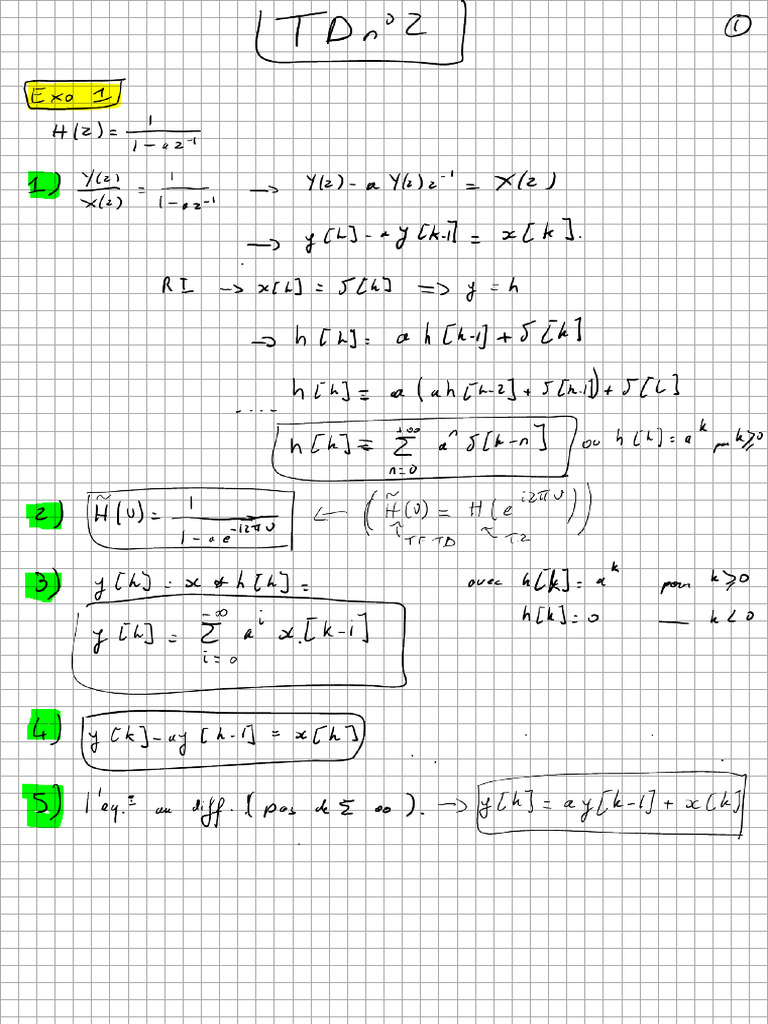 TD n°2
①
Exo 1
H(z) = 1 / (1 - a z⁻¹)
1) Y(z)/X(z) = 1 / (1 - a z⁻¹) → Y(z) - a Y(z) z⁻¹ = X(z)
→ y[k] - a y[k-1] = x[k].
RI → x[k] = δ[k] => y = h
→ h[k] = a h[k-1] + δ[k]
h[k] = a (a h[k-2] + δ[k-1]) + δ[k]
....
h[k] = Σ_{n=0}^{+∞} aⁿ δ[k-n] ou h[k] = a^k pour k ≥ 0
2) H̃(ν) = 1 / (1 - a e^{-i2πν}) ← (H̃(ν) = H(e^{i2πν}))
↑ TFTD ↑ TZ
3) y[k] = x * h[k] = avec h[k] = a^k pour k ≥ 0
h[k] = 0 — k < 0
y[k] = Σ_{i=0}^{-∞} a^i x[k-i]
4) y[k] - a y[k-1] = x[k]
5) l'eq. au diff. (pas de Σ ∞). → y[k] = a y[k-1] + x[k]